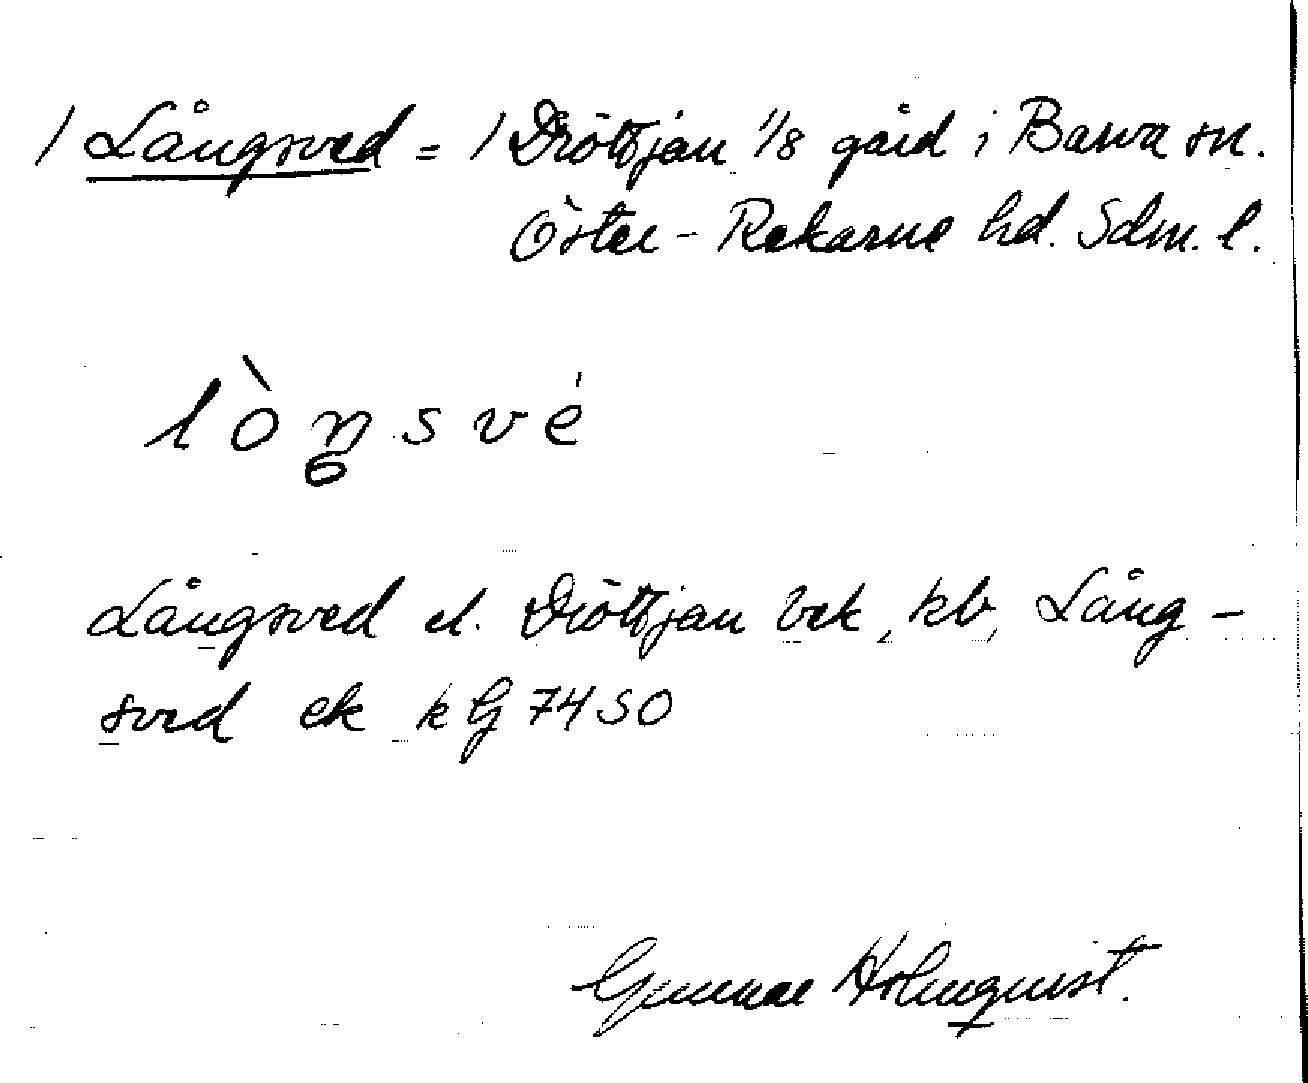 / Långsved = / Dröttjan 1/8 gård i Barva sn.
Öster-Rekarne hd. Sdm. l.
lòŋsvé
Långsved el. Dröttjan bek, kb, Lång-
sved ek kG 7450
Gunnar Holmquist.